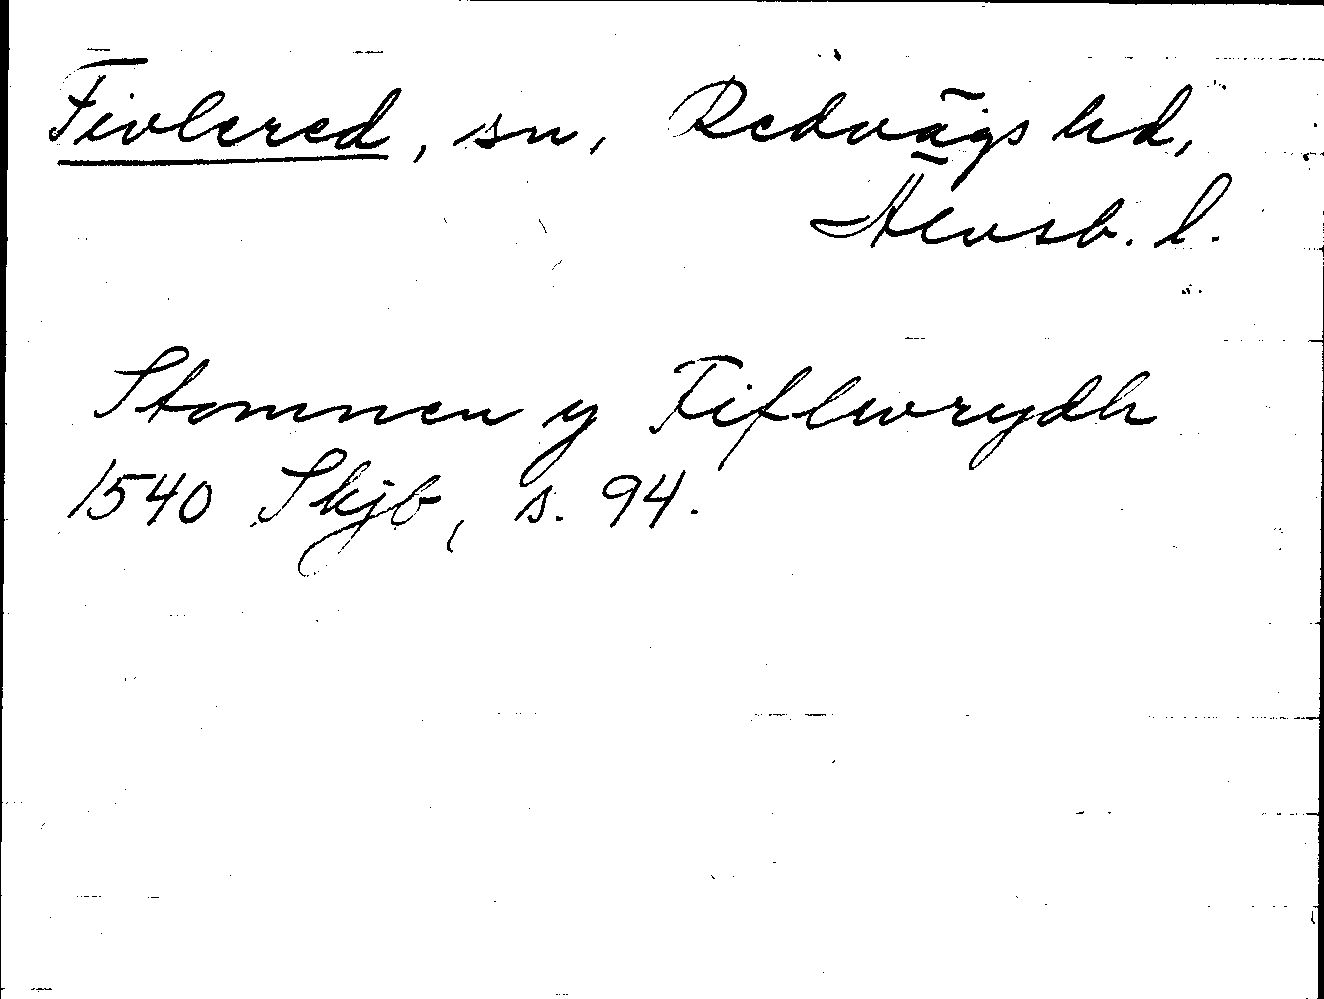 Fivlered, sn, Redvägs hd,
Älvsb. l.
Stommen y Fiflwrydh
1540 Skjb, s. 94.